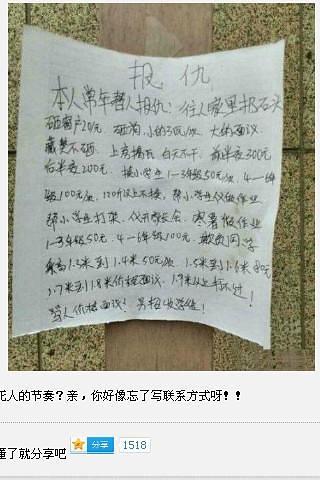 报仇
本人常年替人报仇：往人家里扔石头
砸窗户20元 砸狗，小的30元/次 大的面议
藏獒不砸 上房揭瓦 白天不干 前半夜300元
后半夜200元 揍小学生1-3年级50元/次 4-6年
级100元/次 120斤以上不揍，帮小学生做作业
帮小学生打架 仅开家长会 寒暑假作业
1-3年级50元，4-6年级100元 欺负同学
身高1.3米到1.4米50元/次 1.5米到1.6米80元
1.7米到1.8米价格面议 1.9米以上打不过！
骂人价格面议！另招收学徒！
花人的节奏？亲，你好像忘了写联系方式呀！！
懂了就分享吧 分享 1518